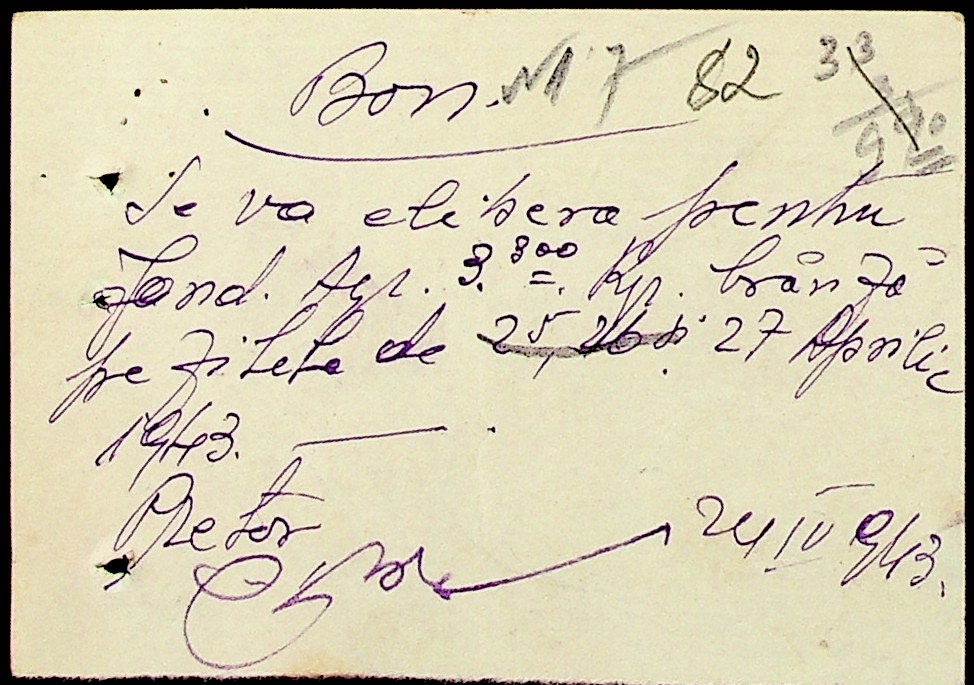 Bon. N 7 82 33
Se va elibera pentru
Jand. Agr. 3.300 Kgr. brânză
pe zilele de 25, 26 și 27 Aprilie
1943. —
Pretor
24 IV 943.